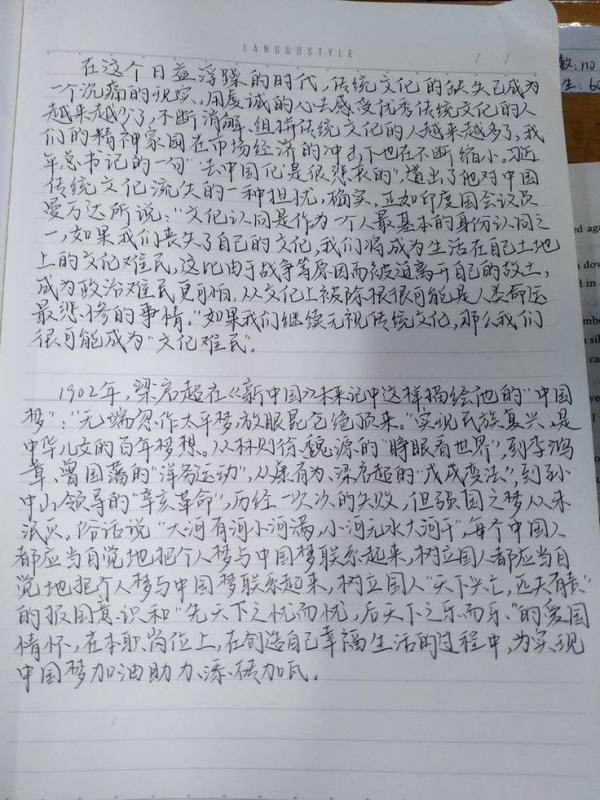 LANGUOSTYLE
/ /
在这个日益浮躁的时代,传统文化的缺失已成为
一个沉痛的现实,用虔诚的心去感受优秀传统文化的人
越来越少了,不断消解、组拼传统文化的人越来越多了,我
们的精神家园在市场经济的冲击下也在不断缩小,习近
平总书记的一句“去中国化是很悲哀的”,道出了他对中国
传统文化流失的一种担忧,确实,正如印度国会议员
曼万达所说:“文化认同是作为一个人最基本的身份认同之
一,如果我们丧失了自己的文化,我们将成为生活在自己土地
上的文化难民,这比由于战争等原因而被迫离开自己的故土,
成为政治难民更可怕,从文化上被除根很可能是人类命运
最悲惨的事情。”如果我们继续无视传统文化,那么我们
很可能成为“文化难民”。
1902年,梁启超在《新中国》未来记中这样描绘他的“中国
梦”:“无端忽作太平梦,放眼昆仑绝顶来。”实现民族复兴,是
中华儿女的百年梦想。从林则徐、魏源的“睁眼看世界”,到李鸿
章、曾国藩的“洋务运动”,从康有为、梁启超的“戊戌变法”,到孙
中山领导的“辛亥革命”,历经一次次的失败,但强国之梦从未
泯灭。俗话说“大河有河小河满,小河无水大河干”,每个中国人
都应当自觉地把个人梦与中国梦联系起来,树立国人都应当自
觉地把个人梦与中国梦联系起来,树立国人“天下兴亡,匹夫有责”
的报国意识和“先天下之忧而忧,后天下之乐而乐”的爱国
情怀,在本职岗位上,在创造自己幸福生活的过程中,为实现
中国梦加油助力、添砖加瓦。